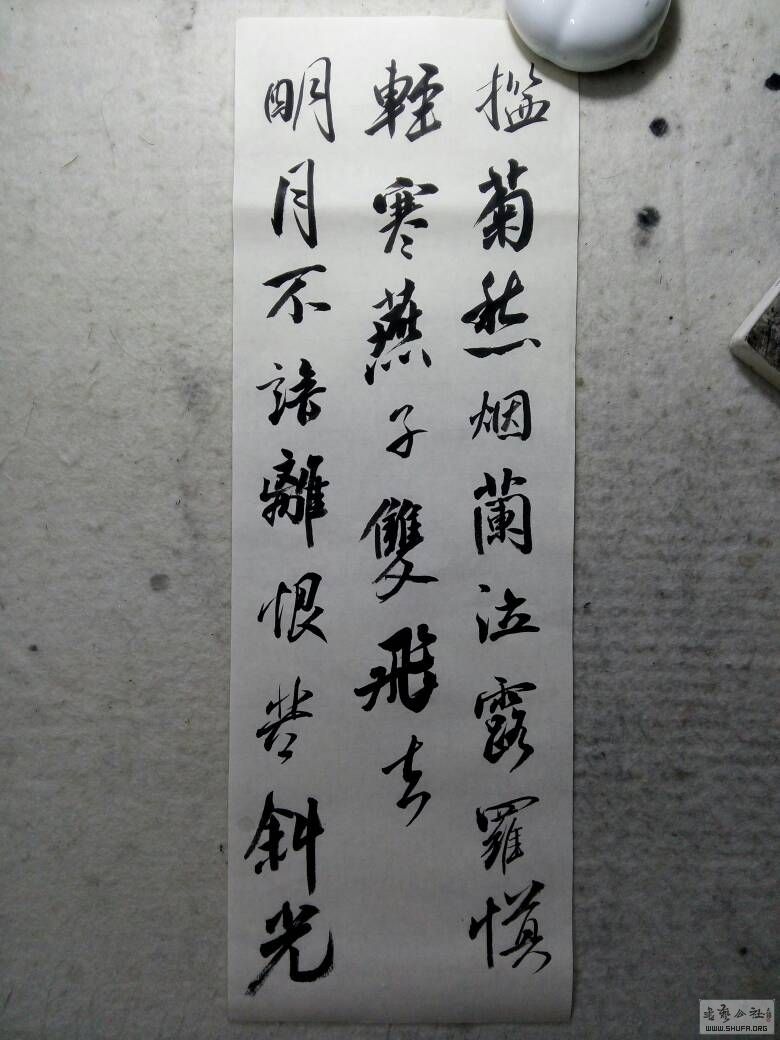 檻菊愁烟蘭泣露羅幙
輕寒燕子雙飛去
明月不諳離恨苦斜光
書藝公社
WWW.SHUFA.ORG